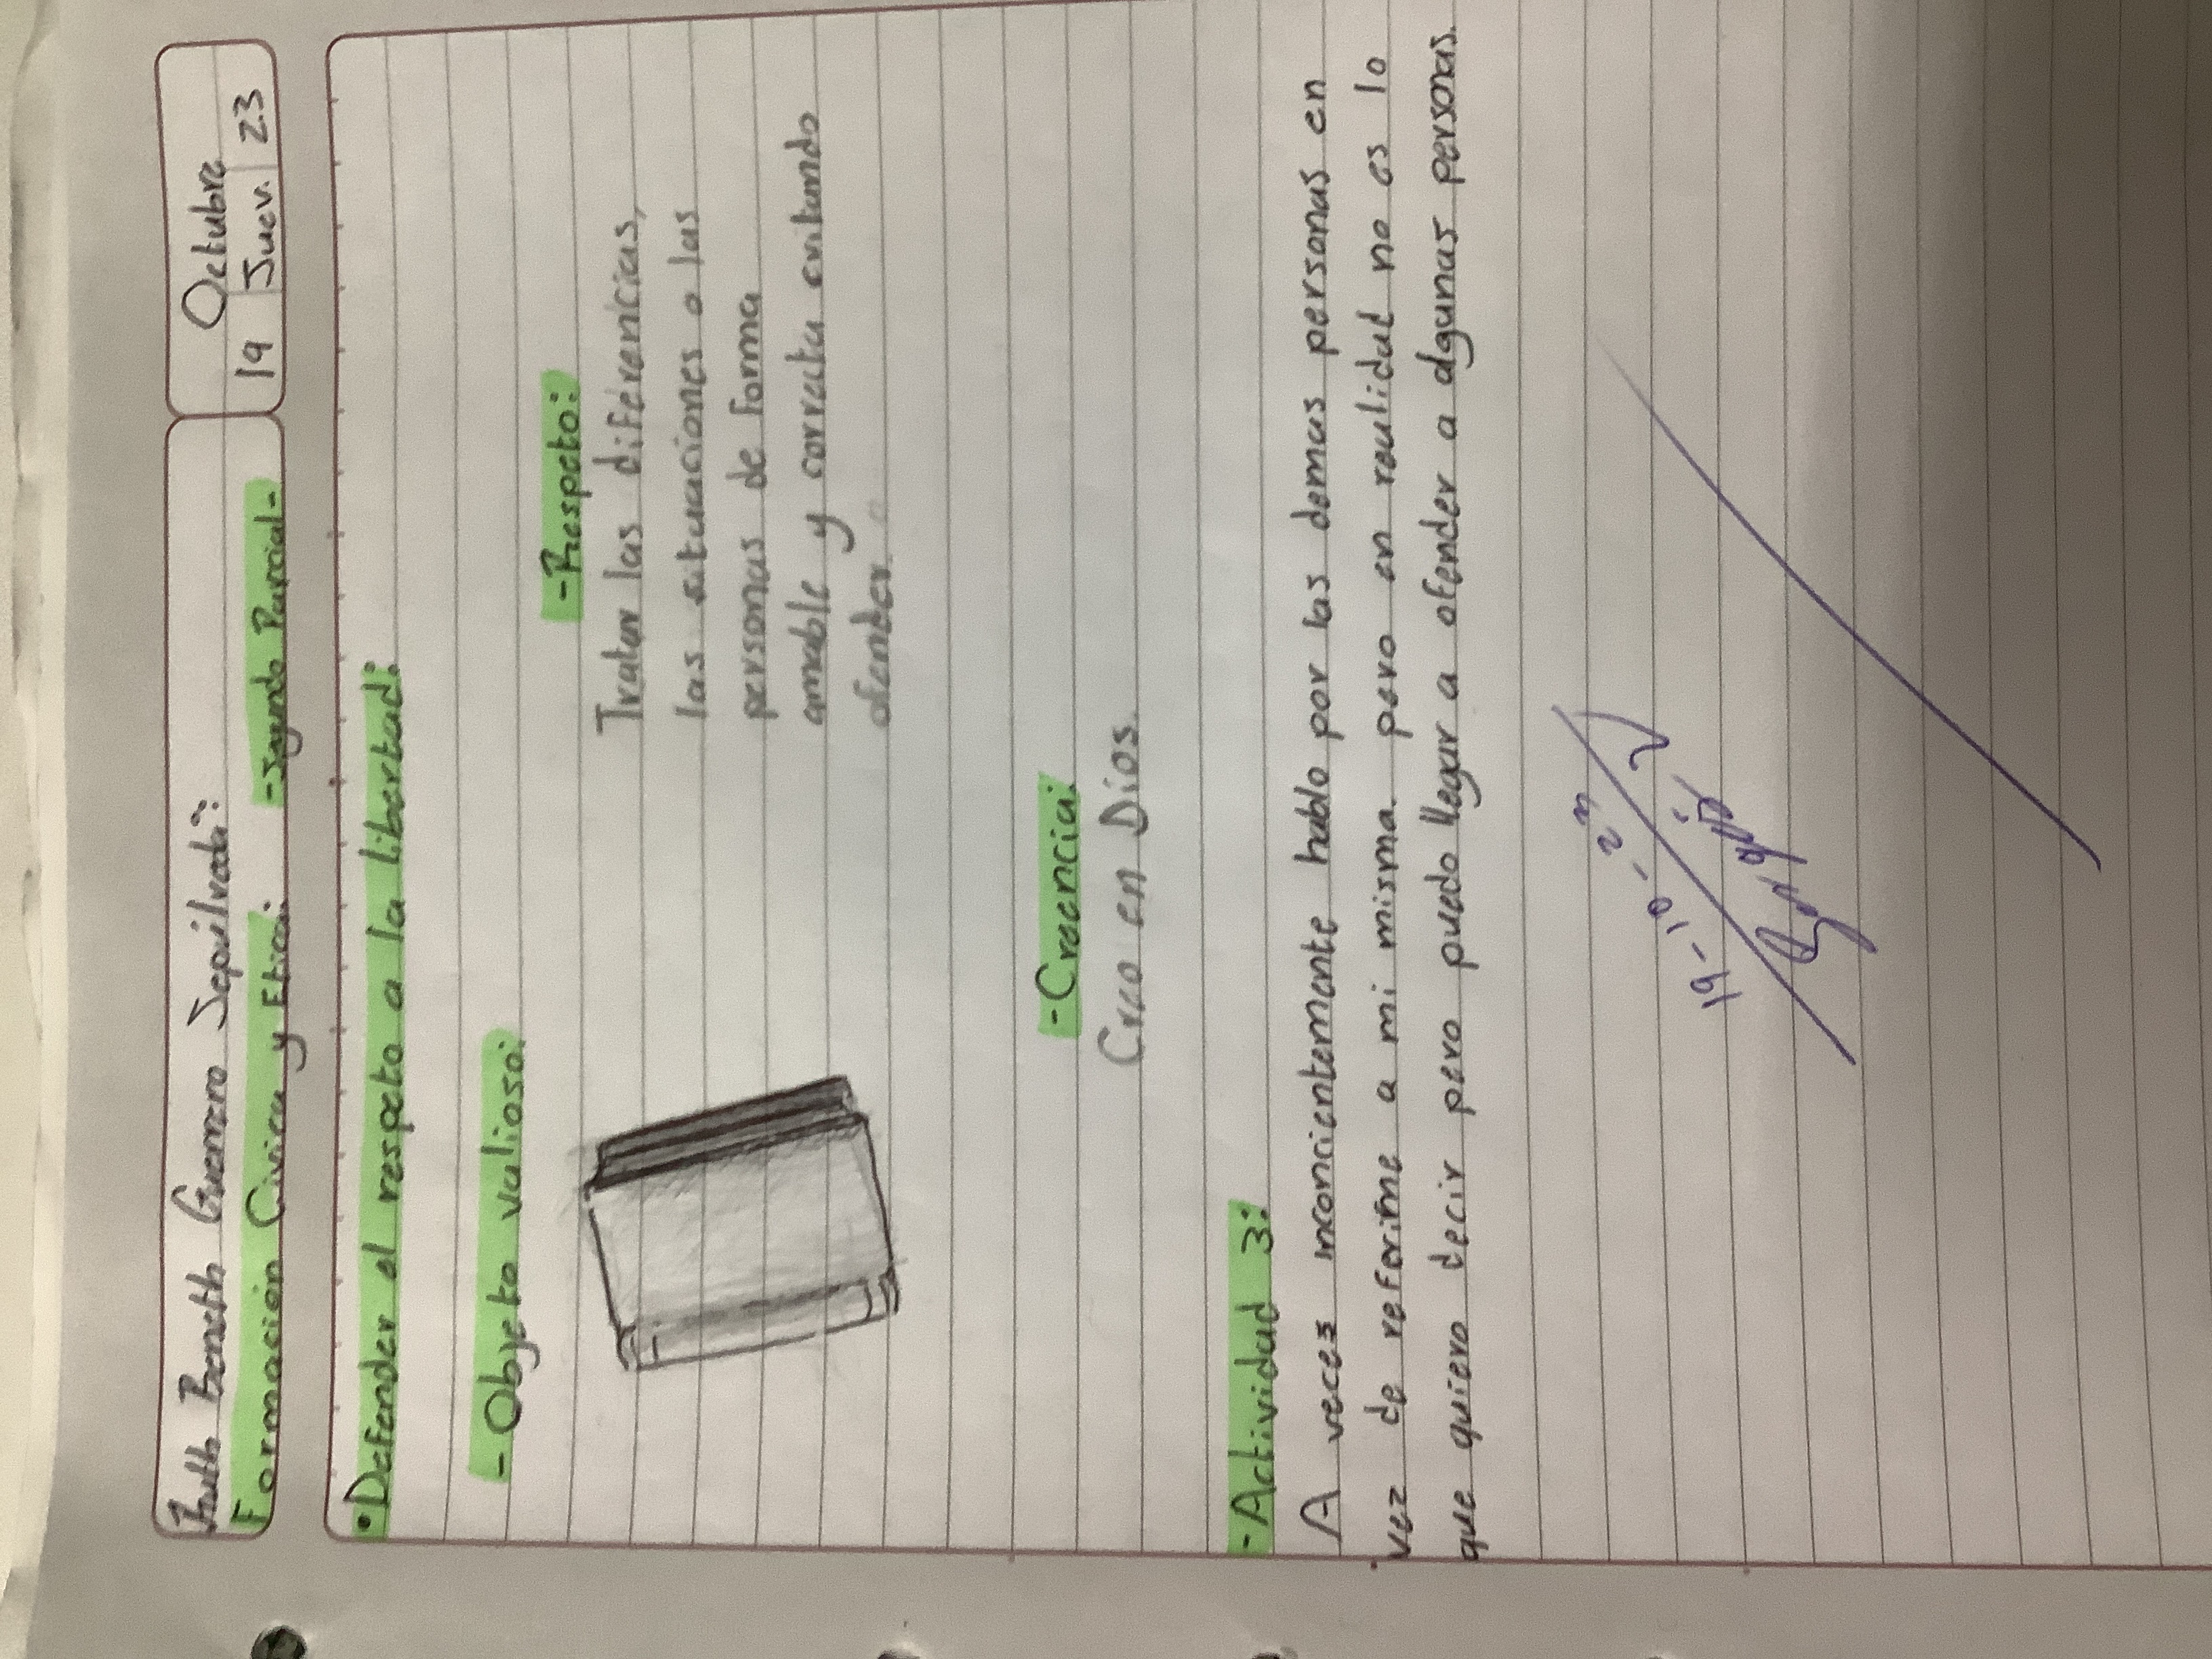 Ruth Beneth Guerrero Sepúlveda:
Octubre
Formación Civica y Etica. -Segundo Parcial-
19 Juev. 23
•Defender el respeto a la libertad:
- Objeto valioso:
-Respeto:
Tratar las diferencias,
las situaciones o las
personas de forma
amable y correcta evitando
ofender.
-Creencia:
Creo en Dios.
-Actividad 3:
A veces inconcientemente hablo por las demas personas en
vez de referirme a mi misma pero en realidad no es lo
que quiero decir pero puedo llegar a ofender a algunas personas.
19-10-23